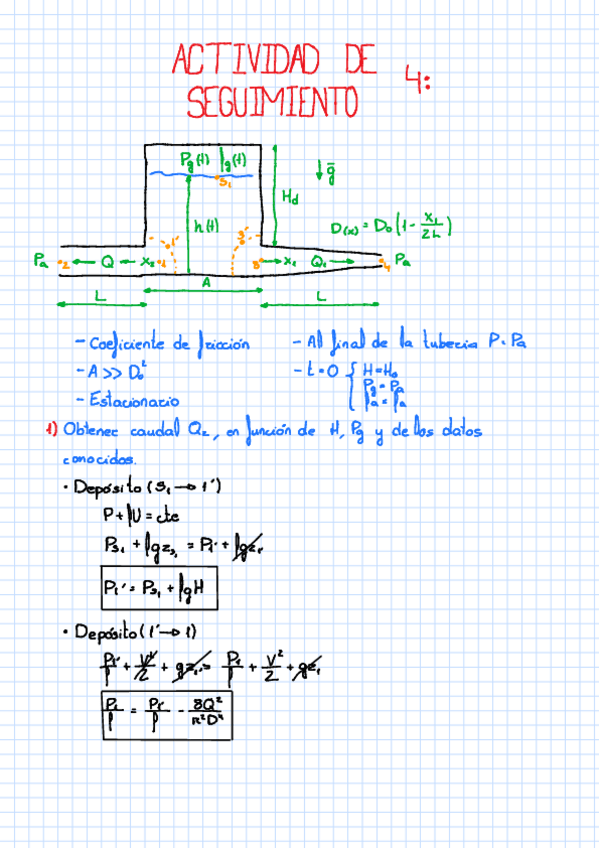 ACTIVIDAD DE
SEGUIMIENTO 4:
Pg(t) ρg(t)
S₁
↓ḡ
Hd
h(t)
D(x) = D₀(1 - x₁/2L)
1' 3'
Pa 2 ← Q ← x₂ 1 3 → x₁ Q₁ → 4 Pa
A
L L
- Coeficiente de fricción
- A >> D₀²
- Estacionario
- Al final de la tubería P = Pa
- t = 0 { H = H₀
Pg = Pa
ρa = ρa
1) Obtener caudal Q₂, en función de H, Pg y de los datos
conocidos.
· Depósito (S₁ → 1')
P + ρU = cte
Ps₁ + ρgzs₁ = P₁' + ρgz₁'
P₁' = Ps₁ + ρgH
· Depósito (1' → 1)
P₁'/ρ + V²/2 + gz₁' = P₁/ρ + V²/2 + gz₁
P₁/ρ = P₁'/ρ - 8Q²/π²D⁴